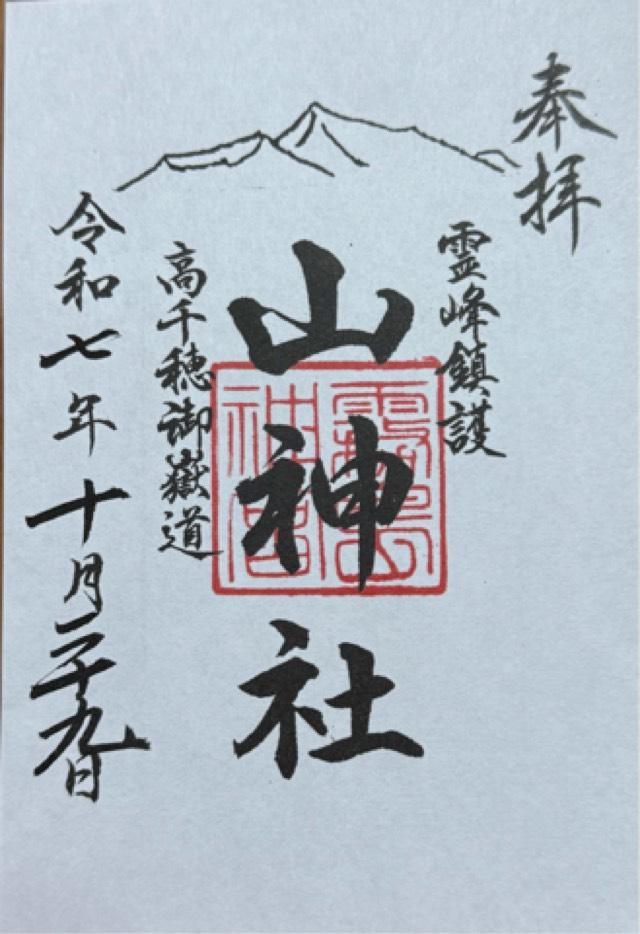 奉拝
霊峰鎮護
山神社
霧島神宮
高千穂御嶽道
令和七年十月二十九日